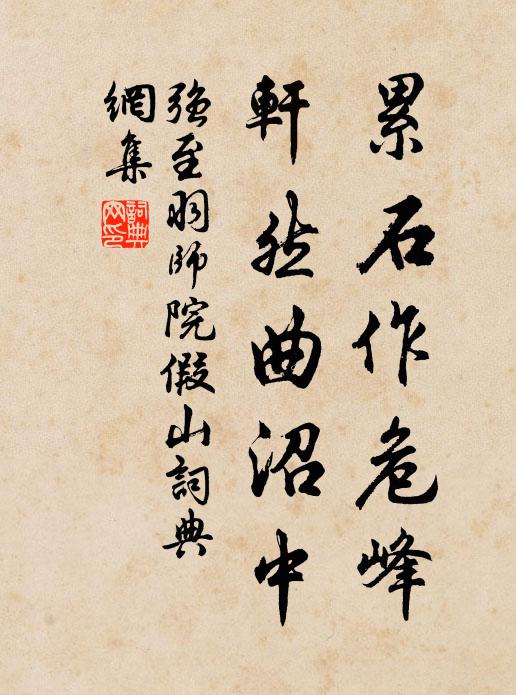 累石作危峰
軒然曲沼中
強至羽師院假山詞典
網集
詞典
网印